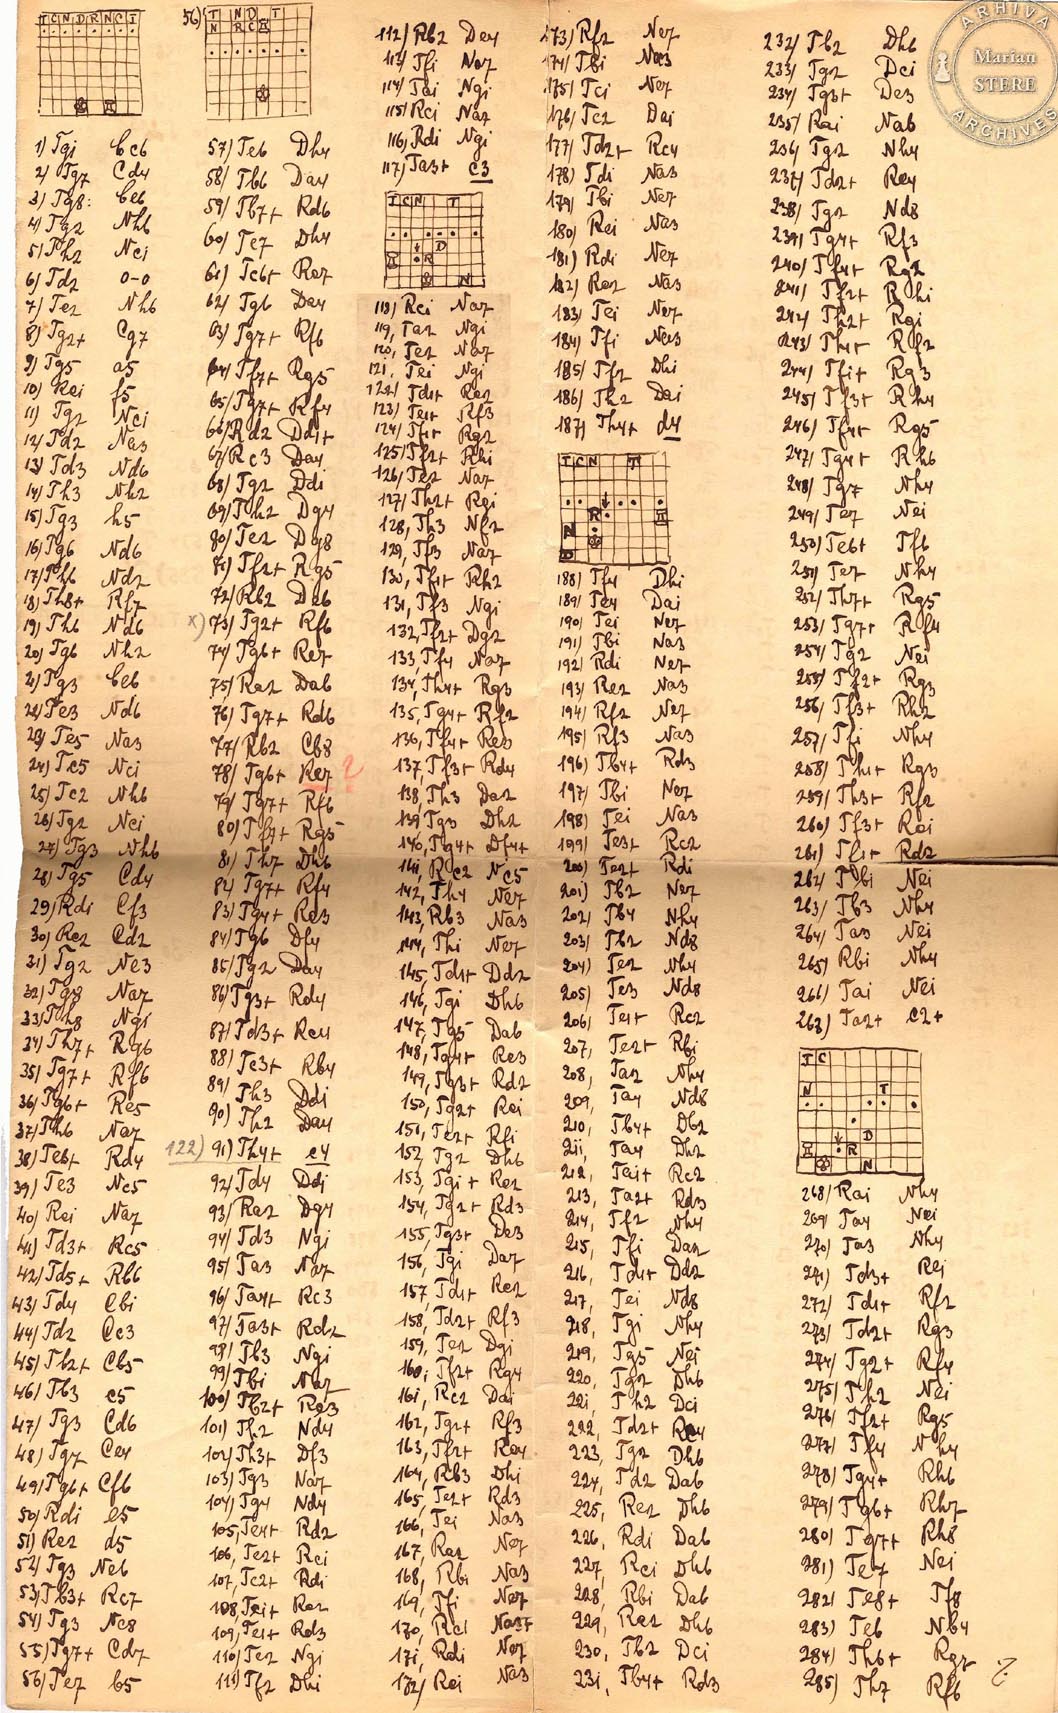 ARHIVA
Marian
STERE
ARCHIVES
T C N D R N C T
56) T N D T
N R C
1) Tg1 Cc6
2) Tg7 Cd4
3) Tg8: Ce6
4) Tg2 Nh6
5) Th2 Nc1
6) Td2 0-0
7) Te2 Nh6
8) Tg2+ Cg7
9) Tg5 a5
10) Re1 f5
11) Tg2 Nc1
12) Td2 Na3
13) Td3 Nd6
14) Th3 Nh2
15) Tg3 h5
16) Tg6 Nd6
17) Th6 Nd2
18) Th8+ Rf7
19) Th6 Nd6
20) Tg6 Nh2
21) Tg3 Ce6
22) Te3 Nd6
23) Te5 Na3
24) Tc5 Nc1
25) Tc2 Nh6
26) Tg2 Nc1
27) Tg3 Nh6
28) Tg5 Cd4
29) Rd1 Cf3
30) Re2 Cd2
31) Tg2 Ne3
32) Tg8 Na7
33) Th8 Ng1
34) Th7+ Rg6
35) Tg7+ Rf6
36) Tg6+ Re5
37) Th6 Na7
38) Te6+ Rd4
39) Te3 Nc5
40) Re1 Na7
41) Td3+ Rc5
42) Td5+ Rb6
43) Td4 Cb1
44) Td2 Cc3
45) Tb2+ Cb5
46) Tb3 c5
47) Tg3 Cd6
48) Tg7 Ce4
49) Tg6+ Cf6
50) Rd1 e5
51) Re2 d5
52) Tg3 Ne6
53) Tb3+ Rc7
54) Tg3 Nc8
55) Tg7+ Cd7
56) Te7 b5
57) Te6 Dh4
58) Tb6 Da4
59) Tb7+ Rd6
60) Tc7 Dh4
61) Tc6+ Re7
62) Tg6 Da4
63) Tg7+ Rf6
64) Tf7+ Rg5
65) Tg7+ Rf4
66) Rd2 Dd1+
67) Rc3 Da4
68) Tg2 Dd1
69) Th2 Dg4
70) Te2 Dg8
71) Tf2+ Rg5
72) Rb2 De6
x) 73) Tg2+ Rf6
74) Tg6+ Re7
75) Ra2 Da6
76) Tg7+ Rd6
77) Rb2 Cb8
78) Tg6+ Re7 ?
79) Tg7+ Rf6
80) Tf7+ Rg5
81) Th7 Dh6
82) Tg7+ Rf4
83) Tg4+ Re3
84) Tg6 Df4
85) Tg2 Da4
86) Tg3+ Rd4
87) Td3+ Rc4
88) Tc3+ Rb4
89) Th3 Dd1
90) Th2 Da4
122) 91) Th4+ e4
92) Td4 Dd1
93) Ra2 Dg4
94) Td3 Ng1
95) Ta3 Na7
96) Ta4+ Rc3
97) Ta3+ Rd2
98) Tb3 Ng1
99) Tb1 Na7
100) Tb2+ Re3
101) Th2 Nd4
102) Th3+ Df3
103) Tg3 Na7
104) Tg4 Nd4
105) Te4+ Rd2
106) Te2+ Rc1
107) Tc2+ Rd1
108) Tc1+ Re2
109) Te1+ Rd3
110) Te2 Ng1
111) Tf2 Dh1
112) Rb2 De4
113) Tf1 Na7
114) Ta1 Ng1
115) Rc1 Na7
116) Rd1 Ng1
117) Ta3+ c3
T C N T
D
R
N
118) Rc1 Na7
119) Ta2 Ng1
120) Te2 Na7
121) Te1 Ng1
122) Td1+ Re2
123) Te1+ Rf3
124) Tf1+ Rg2
125) Tf2+ Rh1
126) Te2 Na7
127) Th2+ Rg1
128) Th3 Nf2
129) Tf3 Na7
130) Tf1+ Rh2
131) Tf3 Ng1
132) Tf2+ Dg2
133) Tf4 Na7
134) Th4+ Rg3
135) Tg4+ Rf2
136) Tf4+ Re3
137) Tf3+ Rd4
138) Th3 Da2
139) Tg3 Dh2
140) Tg4+ Df4+
141) Rc2 Nc5
142) Th4 Ne7
143) Rb3 Na3
144) Th1 Ne7
145) Td1+ Dd2
146) Tg1 Dh6
147) Tg5 Da6
148) Tg4+ Re3
149) Tg3+ Rd2
150) Tg2+ Re1
151) Te2+ Rf1
152) Tg2 Dh6
153) Tg1+ Re2
154) Tg2+ Rd3
155) Tg3+ De3
156) Tg1 Da7
157) Td1+ Re2
158) Td2+ Rf3
159) Te2 Dg1
160) Tf2+ Rg4
161) Rc2 Da1
162) Tg2+ Rf3
163) Tf2+ Re4
164) Rb3 Dh1
165) Te2+ Rd3
166) Te1 Na3
167) Ra2 Ne7
168) Rb1 Na3
169) Tf1 Ne7
170) Rc1 Na3+
171) Rd1 Ne7
172) Re1 Na3
173) Rf2 Ne7
174) Tb1 Na3
175) Tc1 Ne7
176) Tc2 Da1
177) Td2+ Rc4
178) Td1 Na3
179) Tb1 Ne7
180) Re1 Na3
181) Rd1 Ne7
182) Re2 Na3
183) Te1 Ne7
184) Tf1 Na3
185) Tf2 Dh1
186) Th2 Da1
187) Th4+ d4
T C N T
R
N
D
188) Tf4 Dh1
189) Te4 Da1
190) Te1 Ne7
191) Tb1 Na3
192) Rd1 Ne7
193) Re2 Na3
194) Rf2 Ne7
195) Rf3 Na3
196) Tb4+ Rd3
197) Tb1 Ne7
198) Te1 Na3
199) Te3+ Rc2
200) Te2+ Rd1
201) Tb2 Ne7
202) Tb4 Nh4
203) Tb2 Nd8
204) Te2 Nh4
205) Te3 Nd8
206) Te1+ Rc2
207) Te2+ Rb1
208) Ta2 Nh4
209) Ta4 Nd8
210) Tb4+ Db2
211) Ta4 Dh2
212) Ta1+ Rc2
213) Ta2+ Rd3
214) Tf2 Nh4
215) Tf1 Da2
216) Td1+ Dd2
217) Te1 Nd8
218) Tg1 Nh4
219) Tg5 Ne1
220) Tg2 Dh6
221) Th2 Dc1
222) Td2+ Re4
223) Tg2 Dh6
224) Td2 Da6
225) Re2 Dh6
226) Rd1 Da6
227) Rc1 Dh6
228) Rb1 Da6
229) Ra2 Dh6
230) Tb2 Dc1
231) Tb4+ Rd3
232) Tb2 Dh6
233) Tg2 Dc1
234) Tg3+ De3
235) Ra1 Na6
236) Tg2 Nh4
237) Td2+ Re4
238) Tg2 Nd8
239) Tg4+ Rf3
240) Tf4+ Rg2
241) Tf2+ Rh1
242) Th2+ Rg1
243) Th1+ Rf2
244) Tf1+ Rg3
245) Tf3+ Rh4
246) Tf4+ Rg5
247) Tg4+ Rh6
248) Tg7 Nh4
249) Te7 Ne1
250) Te6+ Tf6
251) Te7 Nh4
252) Th7+ Rg5
253) Tg7+ Rf4
254) Tg2 Ne1
255) Tf2+ Rg3
256) Tf3+ Rh2
257) Tf1 Nh4
258) Th1+ Rg3
259) Th3+ Rf2
260) Tf3+ Re1
261) Tf1+ Rd2
262) Tb1 Ne1
263) Tb3 Nh4
264) Ta3 Ne1
265) Rb1 Nh4
266) Ta1 Ne1
267) Ta2+ c2+
T C
N T
D
R
N
268) Ra1 Nh4
269) Ta4 Ne1
270) Ta3 Nh4
271) Td3+ Re1
272) Td1+ Rf2
273) Td2+ Rg3
274) Tg2+ Rf4
275) Th2 Ne1
276) Tf2+ Rg5
277) Tf4 Nh4
278) Tg4+ Rh6
279) Tg6+ Rh7
280) Tg7+ Rh8
281) Te7 Ne1
282) Te8+ Tf8
283) Te6 Nb4
284) Th6+ Rg7
285) Th7 Rf6